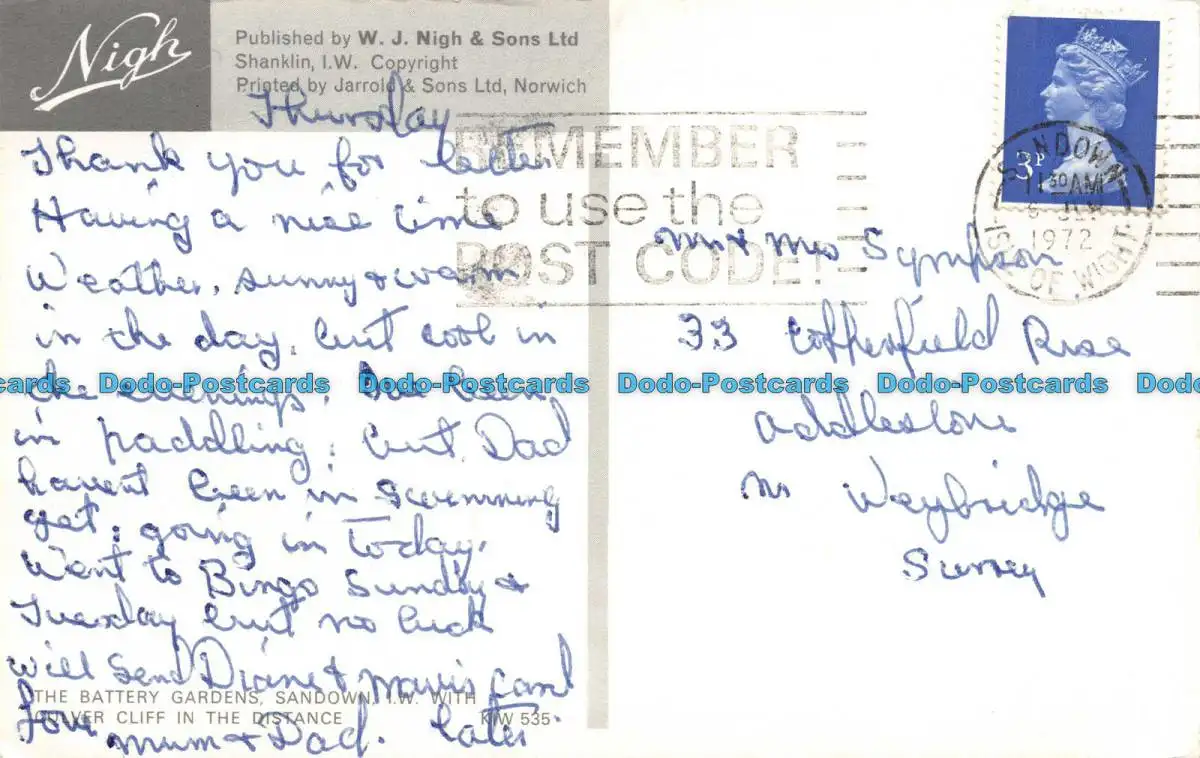 Nigh
Published by W. J. Nigh & Sons Ltd
Shanklin, I.W. Copyright
Printed by Jarrold & Sons Ltd, Norwich
Thursday
Thank you for letter
Having a nice time
Weather, sunny & warm
in the day, but cool in
the evenings, Ive been
in paddling, but Dad
havent been in swimming
yet, going in Today.
Went to Bingo Sunday &
Tuesday but no luck
will send Diane & Mavis card
Love later
Mum & Dad.
THE BATTERY GARDENS, SANDOWN, I.W. WITH
CULVER CLIFF IN THE DISTANCE KIW 535
REMEMBER
to use the
POST CODE!
3P
SANDOWN
11 30 AM
8 JUN
1972
ISLE OF WIGHT
Mr & Mrs Sympson
33 Cotherfield Rise
Addlestone
Nr Weybridge
Surrey
Dodo-Postcards Dodo-Postcards Dodo-Postcards Dodo-Postcards Dodo